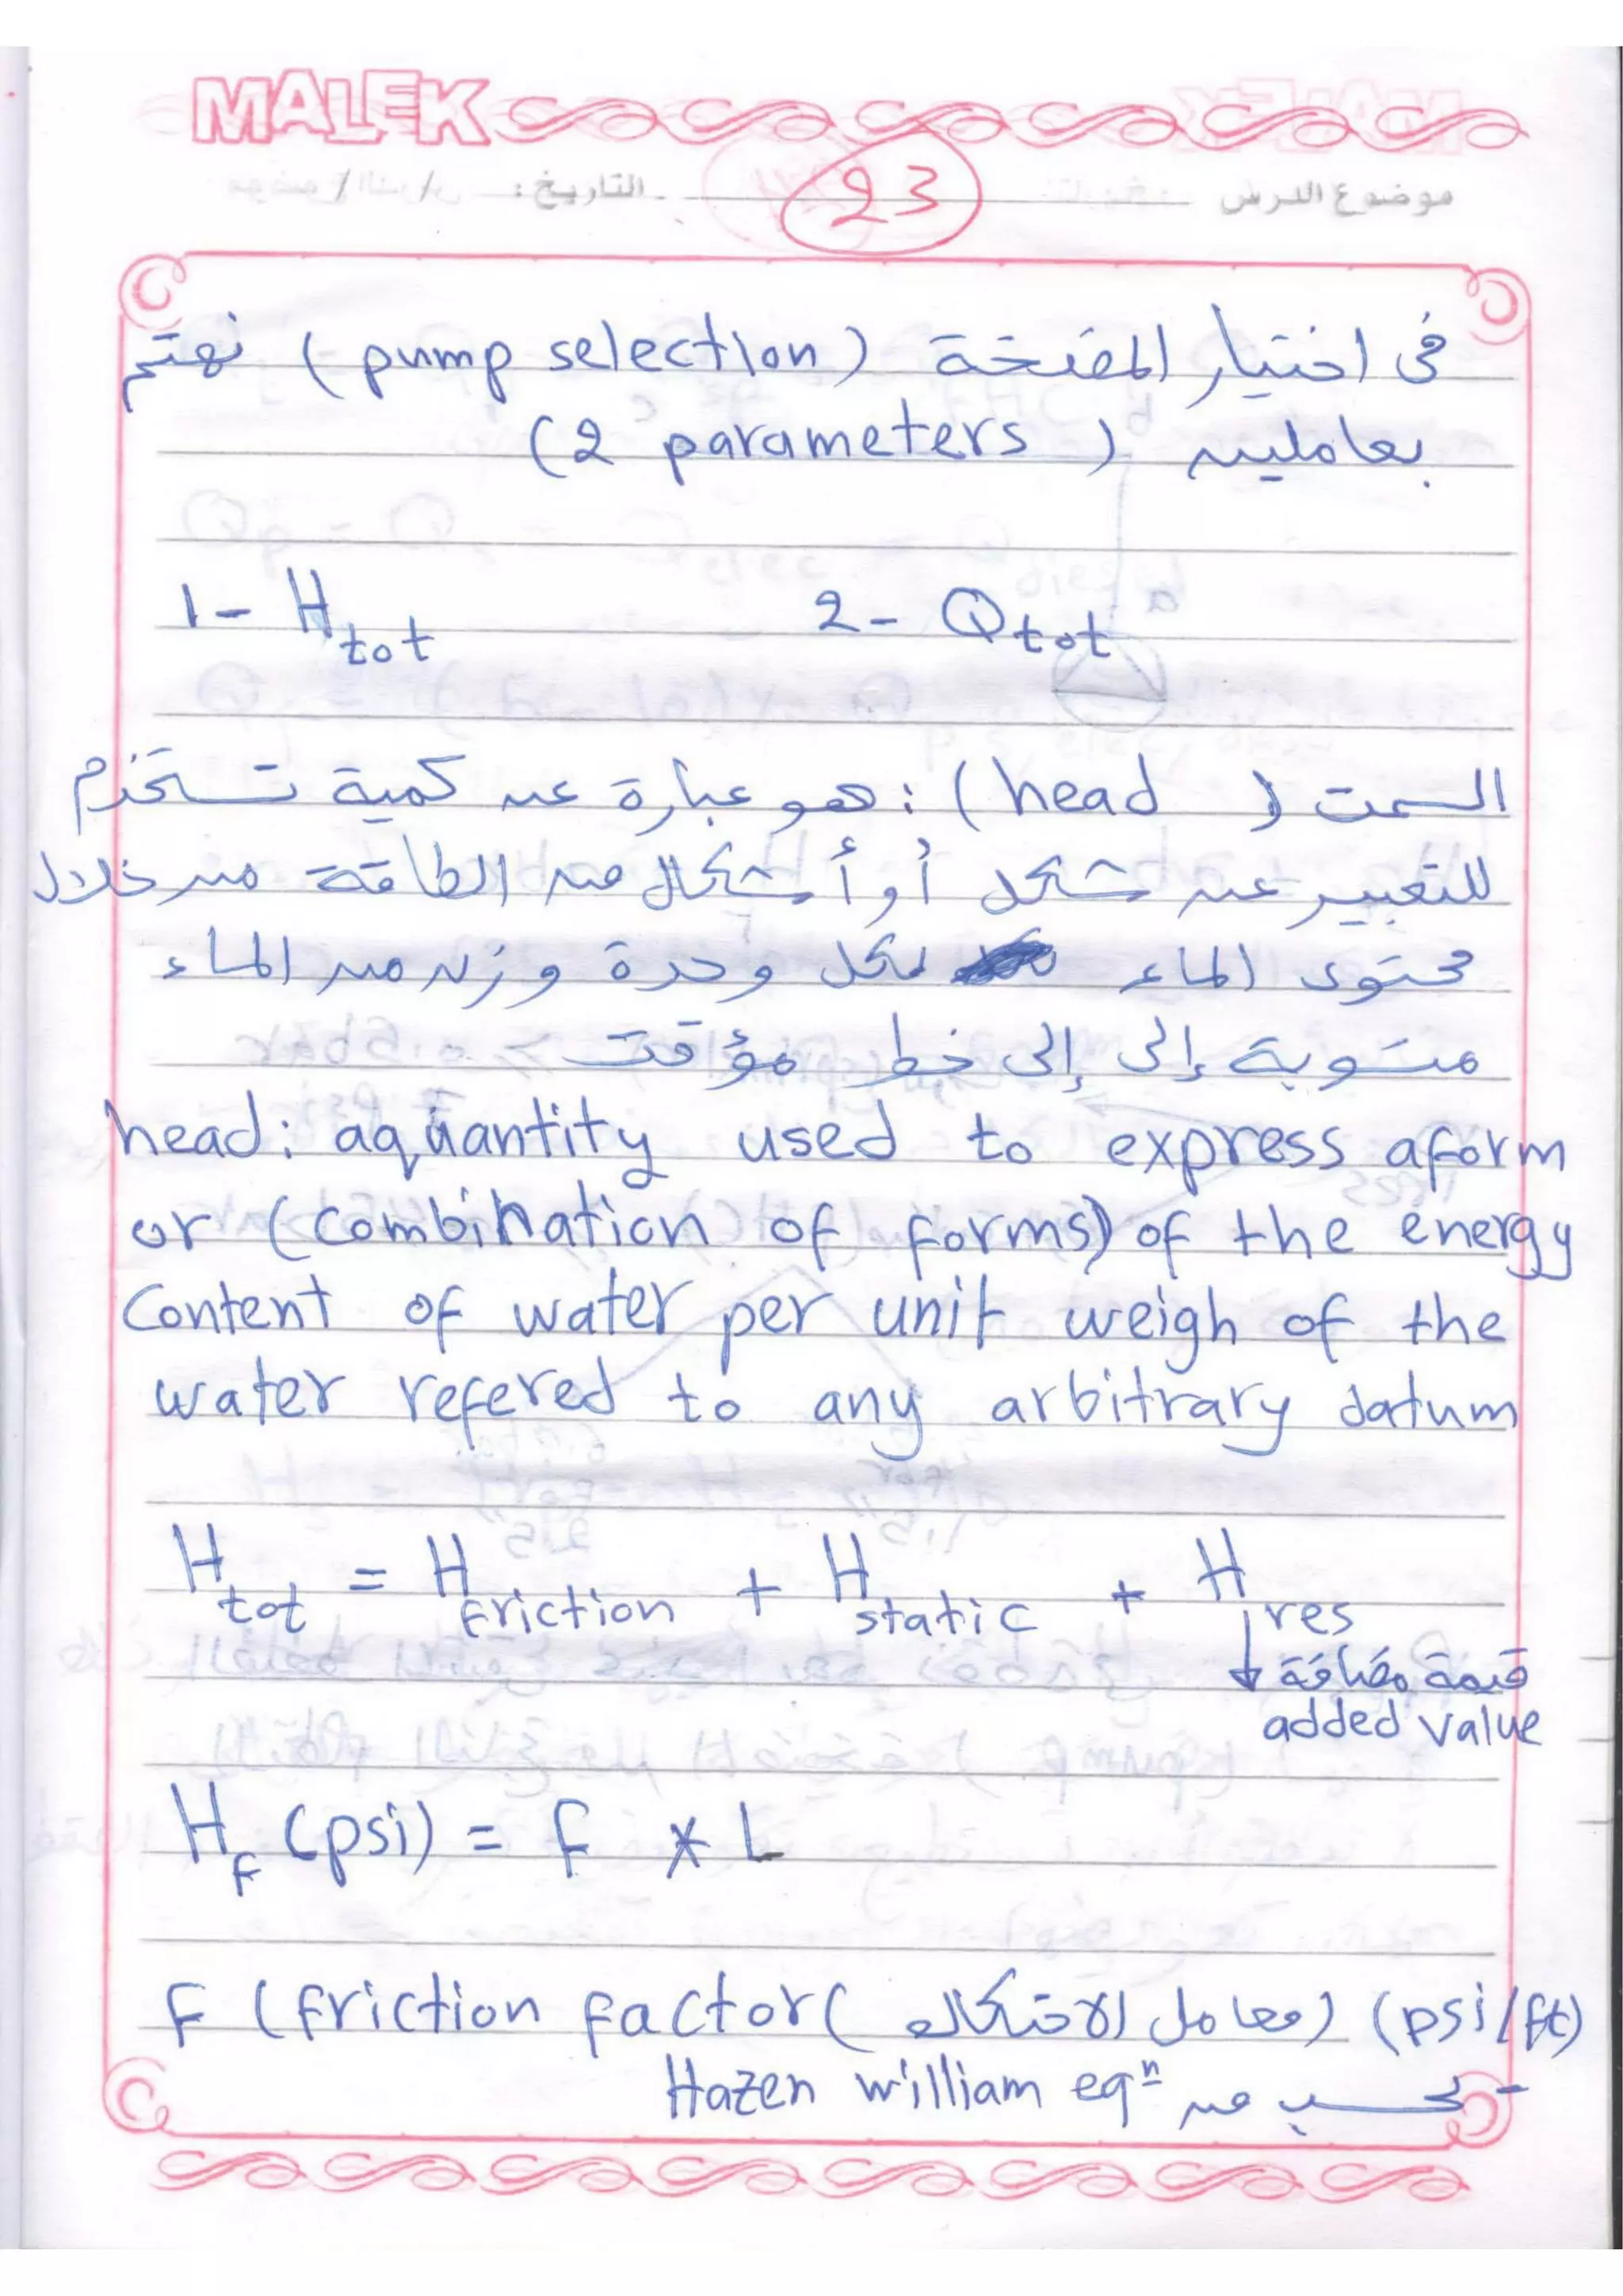 MALEK
موضوع الدرس 23 التاريخ: / /
فى اختيار المضخة (pump selection) نهتم
بعاملين (2 parameters)
1- H tot 2- Q tot
السمت (head): هو عبارة عن كمية تستخدم
للتعبير عن شكل أو أشكال من الطاقة من خلال
محتوى الماء لكل وحدة وزن من الماء
منسوبة إلى إلى خط مؤقت
head: aquantity used to express aform
or (combination of forms) of the energy
Content of water per unit weigh of the
water refered to any arbitrary datum
H tot = H friction + H static + H res
قيمة مضافة
added value
H F (psi) = F * L
F (friction factor (معامل الاحتكاك) (psi/ft)
- تحسب من Hazen william eqn